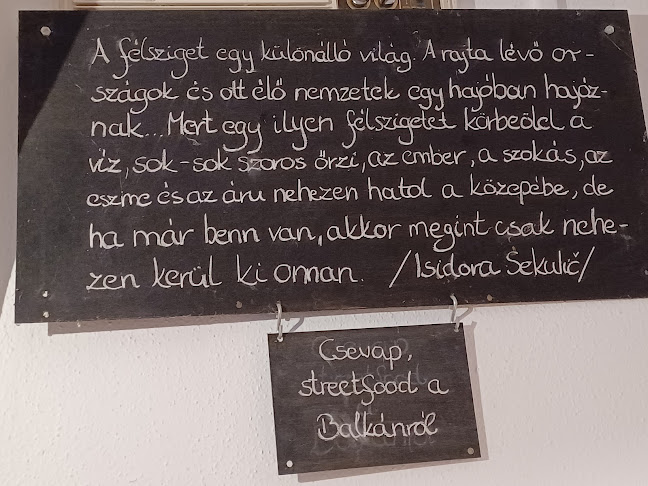 A félsziget egy különálló világ. A rajta lévő or-
szágok és ott élő nemzetek egy hajóban hajóz-
nak... Mert egy ilyen félszigetet körbeölel a
víz, sok-sok szoros őrzi, az ember, a szokás, az
eszme és az áru nehezen hatol a közepébe, de
ha már benn van, akkor megint csak nehe-
zen kerül ki onnan. /Isidora Sekulič/
Csevap,
streetfood a
Balkánról